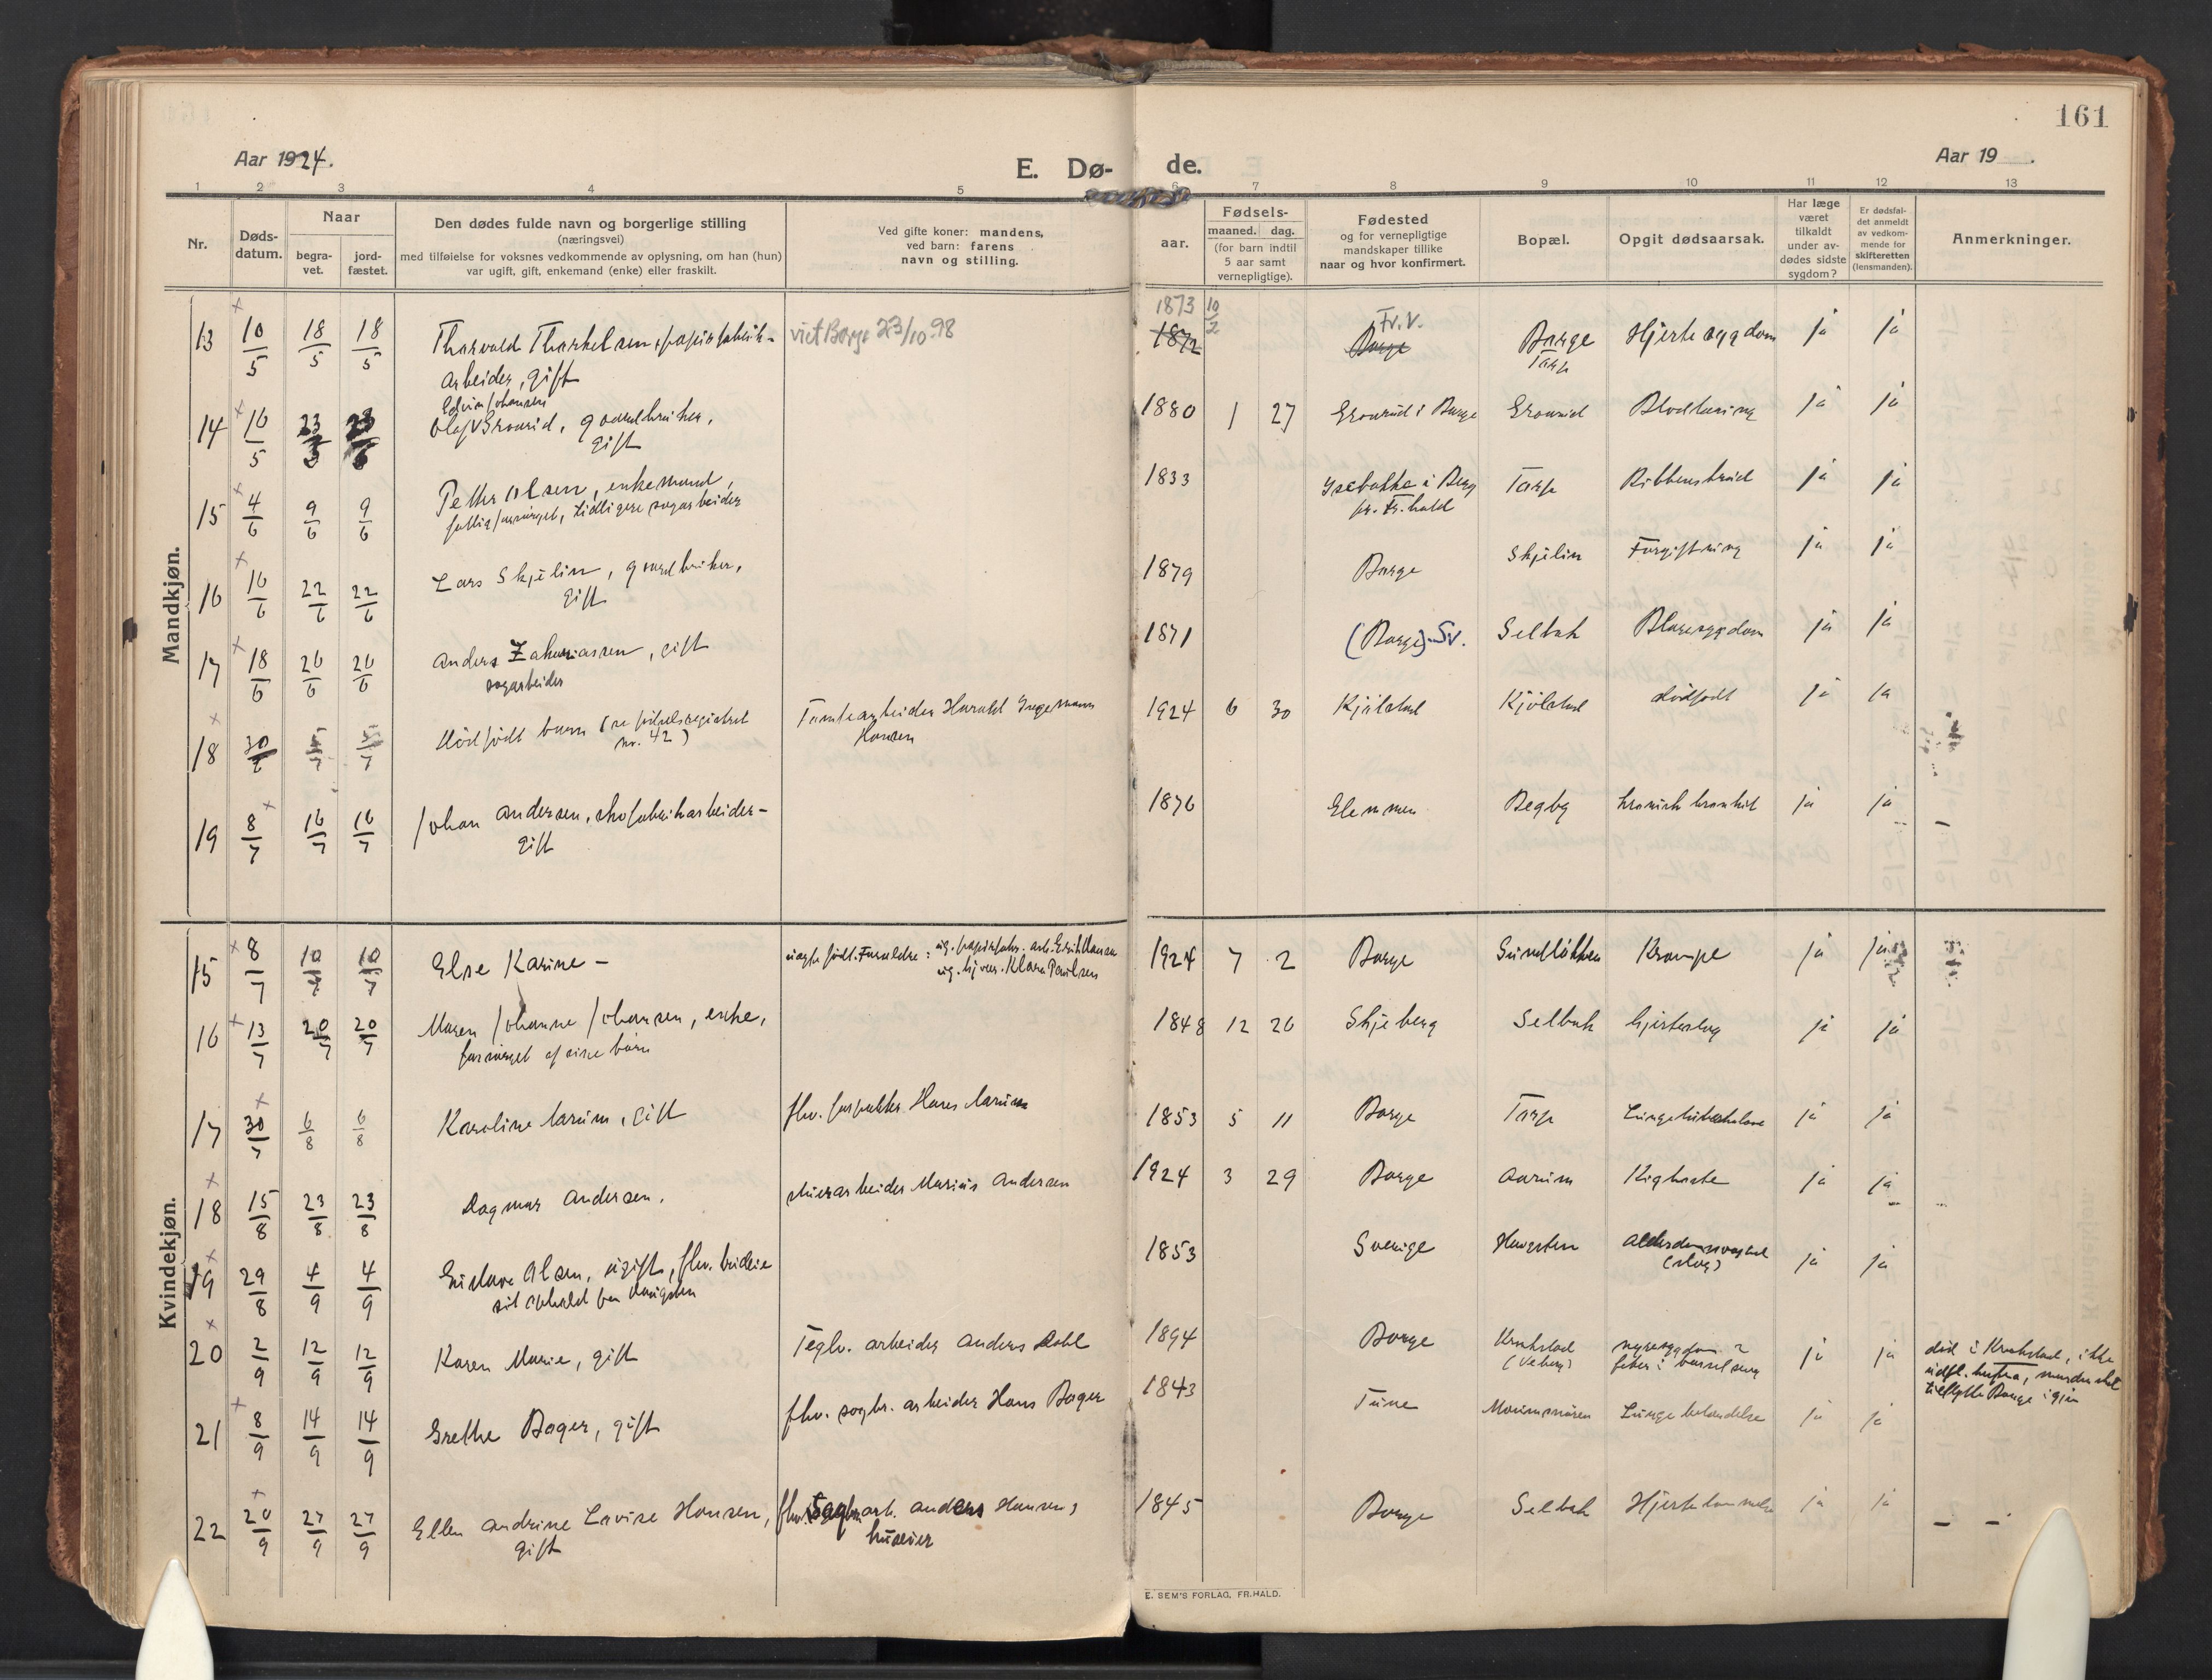 161
Aar 1924.
E. Dø-
de.
Aar 19 .
1 2 3 4 5 6 7 8 9 10 11 12 13
Nr.
Døds-
datum.
Naar
begra-
vet.
jord-
fæstet.
Den dødes fulde navn og borgerlige stilling
(næringsvei)
med tilføielse for voksnes vedkommende av oplysning, om han (hun)
var ugift, gift, enkemand (enke) eller fraskilt.
Ved gifte koner: mandens,
ved barn: farens
navn og stilling.
aar.
Fødsels-
maaned. dag.
(for barn indtil
5 aar samt
vernepligtige).
Fødested
og for vernepligtige
mandskaper tillike
naar og hvor konfirmert.
Bopæl.
Opgit dødsaarsak.
Har læge
været
tilkaldt
under av-
dødes sidste
sygdom?
Er dødsfal-
det anmeldt
av vedkom-
mende for
skifteretten
(lensmanden).
Anmerkninger.
Mandkjøn.
13 10/5 18/5 18/5 Thorvald Thorkelsen, papirfabrik- viet Borge 23/10.98 1873 10/2 1872 Fr.v. Borge Borge Hjertesygdom ja ja
arbeider, gift Torp
Edvin Johansen
14 16/5 23/5 23/5 Olaf Grourid, gaardbruker, 1880 1 27 Grourid i Borge Grourid Blodtæring ja ja
gift
15 4/6 9/6 9/6 Petter Olsen, enkemand, 1833 Isebakke i Berg Torp Ribbensbrud ja ja
fattigforsørget, tidligere sagarbeider pr. Fr.hald
16 16/6 22/6 22/6 Lars Skjelin, gaardbruker, 1879 Borge Skjelin Forgiftning ja ja
gift
17 18/6 26/6 26/6 Anders Zakariassen, gift 1871 (Borge) Sv. Selbak Blæresygdom ja ja
sagarbeider
18 30/6 5/7 5/7 Dødfødt barn (se fødselsregistret Tomtearbeider Harald Ingemann 1924 6 30 Kjølstad Kjølstad dødfødt ja ja
nr. 42) Hansen
19 8/7 16/7 16/7 Johan Andersen, skofabrikarbeider- 1876 Glemmen Begby kronisk bronkit ja ja
gift
Kvindekjøn.
15 8/7 10/7 10/7 Else Karine - uægte født. Forældre: ug. papirfabr. arb. Erik Hansen 1924 7 2 Borge Sundløkken Krampe ja ja
ug. Klara Paulsen
16 13/7 20/7 20/7 Maren Johanne Johansen, enke, 1848 12 26 Skjeberg Selbak hjerteslag ja ja
forsørget af sine barn
17 30/7 6/8 6/8 Karoline Aarum, gift fhv. forpakter Hans Aarum 1853 5 11 Borge Torp Lungetuberkulose ja ja
18 15/8 23/8 23/8 Dagmar Andersen. Marius Andersen 1924 3 29 Borge Aarum Kighoste ja ja
19 29/8 4/9 4/9 Gustava Olsen, ugift, fhv. budeie 1853 Sverige Haugsten Alderdomssvaghed ja ja
sit ophold paa Haugsten (slag)
20 2/9 12/9 12/9 Karen Marie, gift Teglv. arbeider Anders Dahl 1894 Borge Krakstad nyresygdom ? ja ja død i Krakstad, ikke
feber i barselseng utfl. herfra, manden skal
tilflytte Borge igjen
21 8/9 14/9 14/9 Grethe Bager, gift fhv. sagbr. arbeider Hans Bager 1843 Tune Moumsmoren Lungebetændelse ja ja
22 20/9 27/9 27/9 Ellen Andrine Lovise Hansen, fhv. Sagbr.arb. Anders Hansen, 1845 Borge Selbak Hjertelammelse ja ja
gift huseier
E. SEM'S FORLAG, FR.HALD.